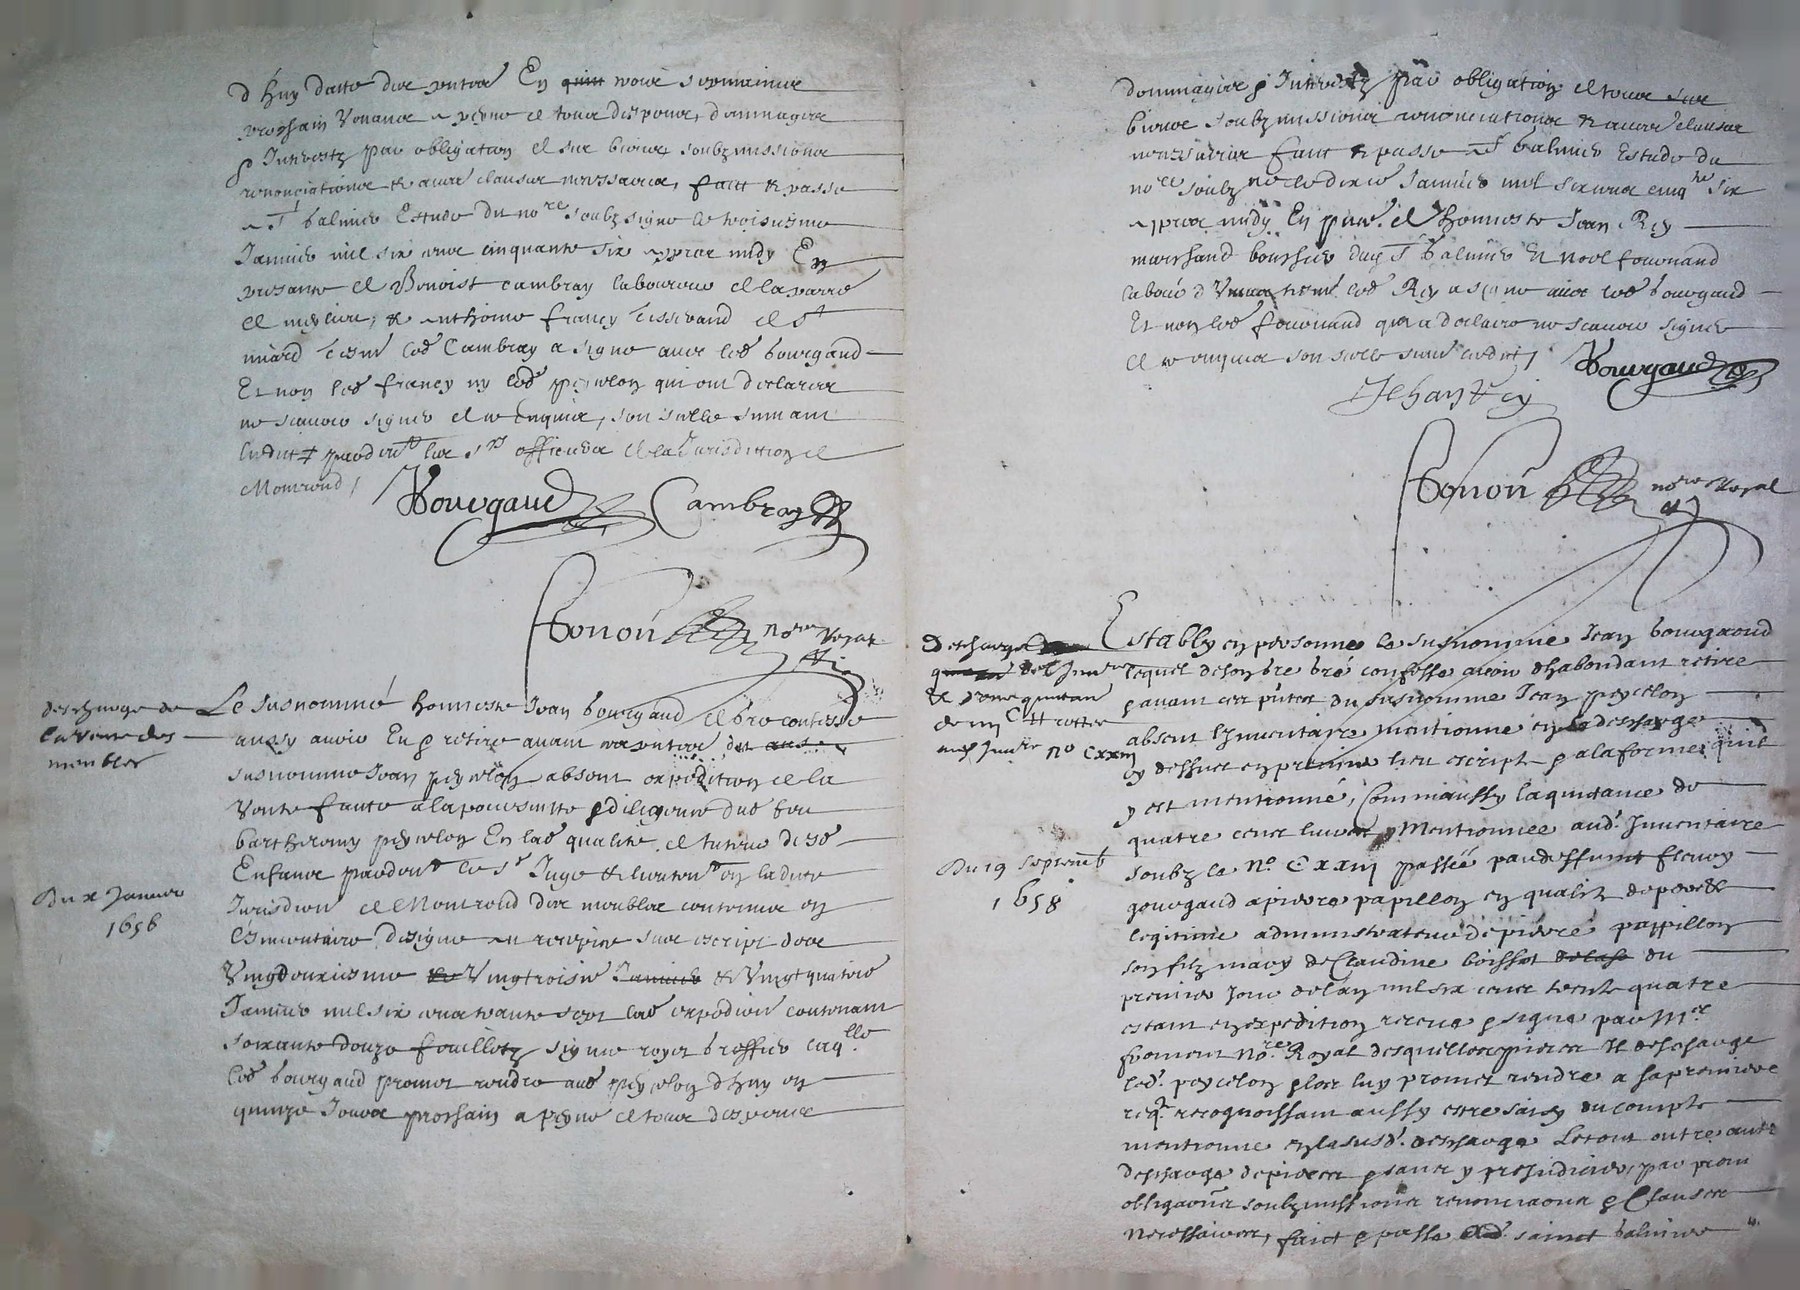 d'huy datte des pntes En quin trois sepmaines
prochain Venans a peyne de tous despens, dommages
& Interestz par obligation de ses biens, soubzmissions
renonciations & autres clauses necessaires, faict & passé
a St balmier Estude du nore soubzsigne le troisiesme
Januier mil six cens cinquante six appres midy En
presance de Benoist Cambray laboureur de la parre
de meylieu, & anthoine francy tisserand de St
miard tesm led Cambray a signe auec led bourgaud
Et non led francy ny led peycelon qui ont declares
ne scauoir signer de ce enquis, son selle suiuant
ledict par dt les srs officiers de la Jurisdition de
Montrond /
Bourgaud Cambray
Tonon nore Royal
descharge de
la vente des
meubles
Le susnommé honneste Jean bourgaud de bre confesse
aussy auoir En & retire auant ces pntes dud
susnomme Jean peycelon absent expedition de la
vente faite a la poursuitte & diligence dud feu
barthelemy peycelon En lad qualite de tuteur desd
Enfans pardeut les sr Juge & lieutent en la dicte
Jurisdion de Montrond des meubles contenus en
l'Inuentaire designe au recepice sus escript des
Vingdeuxiesme Vingtroisie Januier & Vingtquatrie
Januier mil six cens trante sept lad expedion contenant
soixante douze feuilletz signe royet greffier laqlle
led bourgaud promet rendre aud peycelon d'huy en
quinze Jours prochain a peyne de tous despens
Du x Januier
1656
dommages & Interestz par obligation de tous ses
biens soubzmissions renonciations & autres clauses
necessaires faict & passe a St balmier Estude du
nore soubzne le dixie Januier mil six cens cinqte six
appres midy En pnce de honneste Jean Rey
marchand boursier dud St balmier Et noel fournand
labour d'Vnias tesm led Rey a signe auec led bourgaud
Et non led fournand qui a declaire ne scauoir signer
de ce enquis son selle suiu ledict /
Bourgaud
Jehan Rey
Tonon nore Royal
descharge
del Inuere
& d'une quittan
de iiij C tt cottee
aud Inuere no Cxxiij
Establly en personne le susnomme Jean bourgaud
lequel de son bre gré confesse auoir d'habondant retire
& auant ces pntes du susnomme Jean peycelon
absent l'Inuentaire mentionne en la descharge
cy dessus en premier lieu escripte & a la forme quil
y est mentionné, Comm aussy la quittance de
quatre cens liures y Mentionnee aud. Inuentaire
soubz le No. Cxxiij passée par deffunct fleury
gourgaud a pierre papillon en qualite de pere &
legitime administrateur de pierre pappillon
son filz mary de Claudine boisset de la se du
premier Jour de l'an mil six cens trente quatre
estant en expedition receue & signe par Mre
froment Nore. Royal desquelles pieces Il descharge
led. peycelon & les luy promet rendre a sa premiere
reqt. recognoissant aussy estre saisy du compte
mentionne en la susd. descharge Le tout outre autre
descharge de pieces & sans y prejudicier, par prom
obligaons soubzmissions renonciaons & Clauses
necessaires, faict & passe Aud. sainct balmier
Du 19 septemb
1658